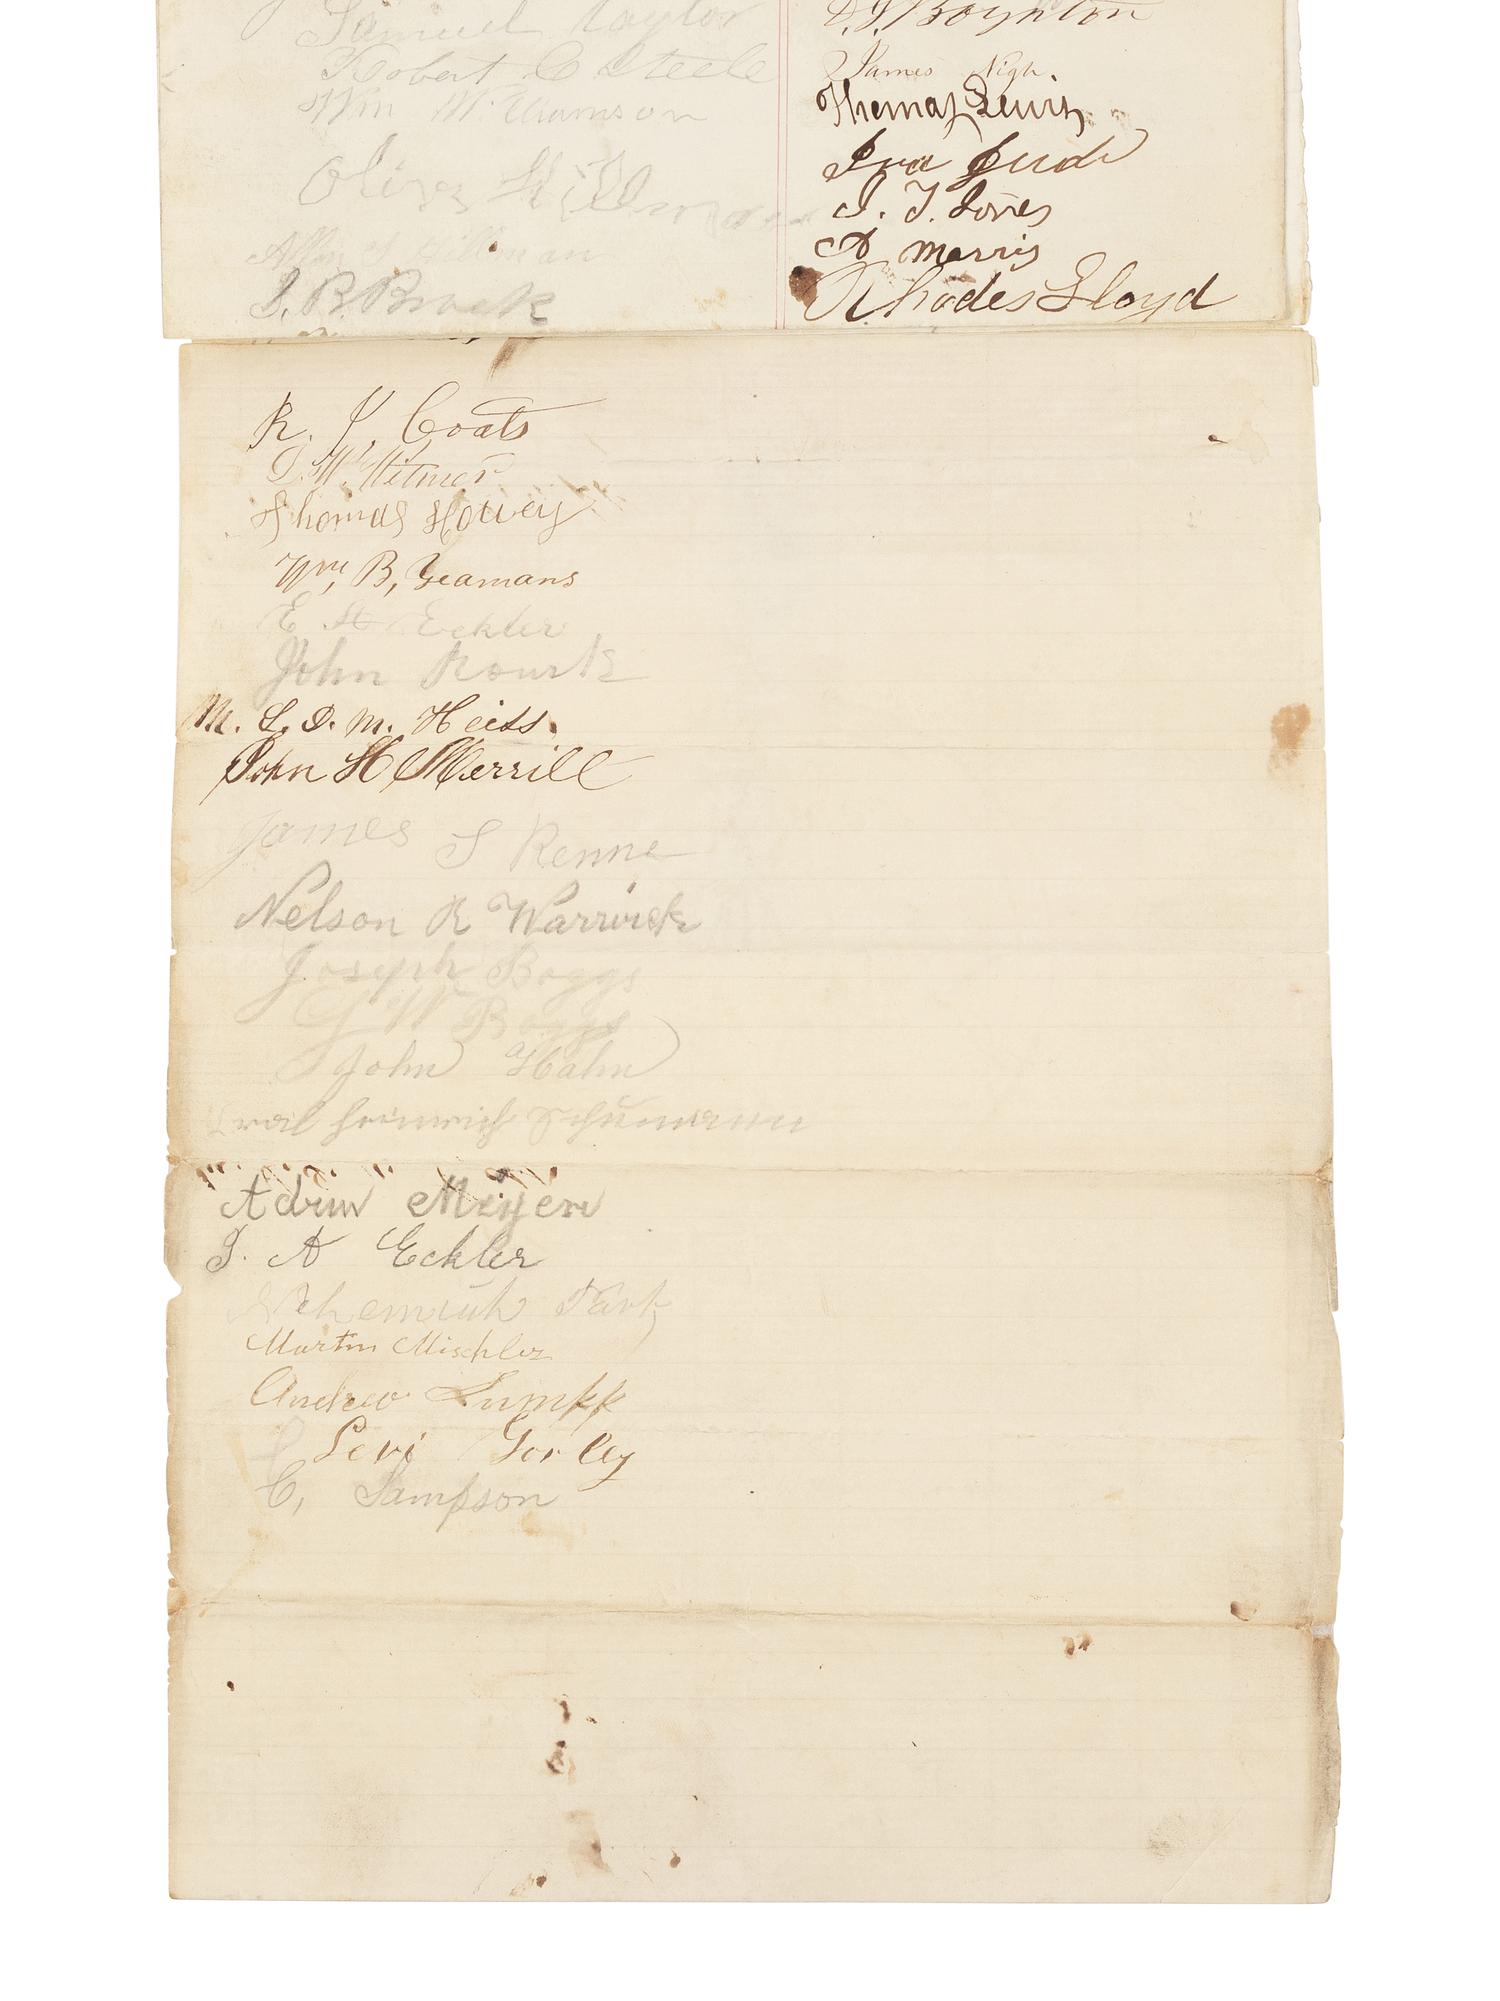 Samuel Taylor
Robert C Steele
Wm Williamson
Oliver Hillman
S Hillman
J. B. Brock
D. J. Boynton
James Nigh.
Thomas Lewis
Ira Jude
J. T. Jones
A Morris
Rhodes Lloyd
R. J. Coats
D. W. Witmer
Thomas Howey
Wm, B, Yeamans
E H Eckler
John Rourk
M. L. D. M. Heiss.
John H Merrill
James S Renne
Nelson R Warrick
Joseph Boggs
G W Boggs
John Hahn
Heinrich Schümann
Meyer
J. A Eckler
Nehemiah Park
Martin Mischler
Andrew Lumpp
Levi Gorley
C, Sampson